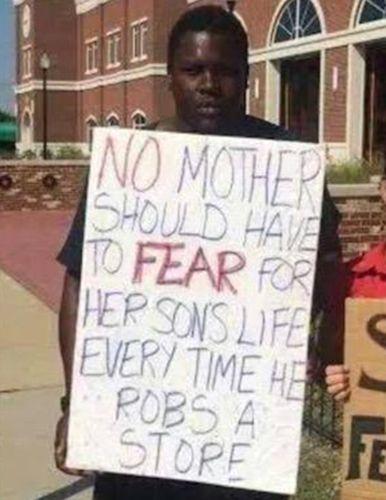 NO MOTHER
SHOULD HAVE
TO FEAR FOR
HER SON'S LIFE
EVERY TIME HE
ROBS A
STORE
S
FE